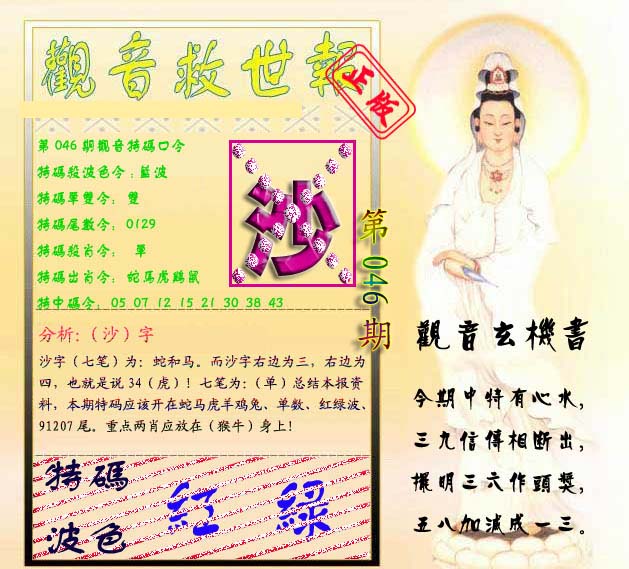 觀音救世報
正版
第 046 期觀音特碼口令
特碼殺波色令：藍波
特碼單雙令： 雙
特碼尾數令： 0129
特碼殺肖令： 單
特碼出肖令： 蛇馬虎鷄鼠
特中碼令： 05 07 12 15 21 30 38 43
沙
第 046 期
分析:（沙）字
沙字（七笔）为：蛇和马。而沙字右边为三，右边为
四，也就是说 34（虎）！七笔为：(单) 总结本报资
料，本期特码应该开在蛇马虎羊鸡兔、单数、红绿波、
91207 尾。重点两肖应放在（猴牛）身上!
特碼
波色
紅 綠
觀音玄機書
今期中特有心水，
三九信傳相断出，
擺明三六作頭獎，
五八加減成一三。